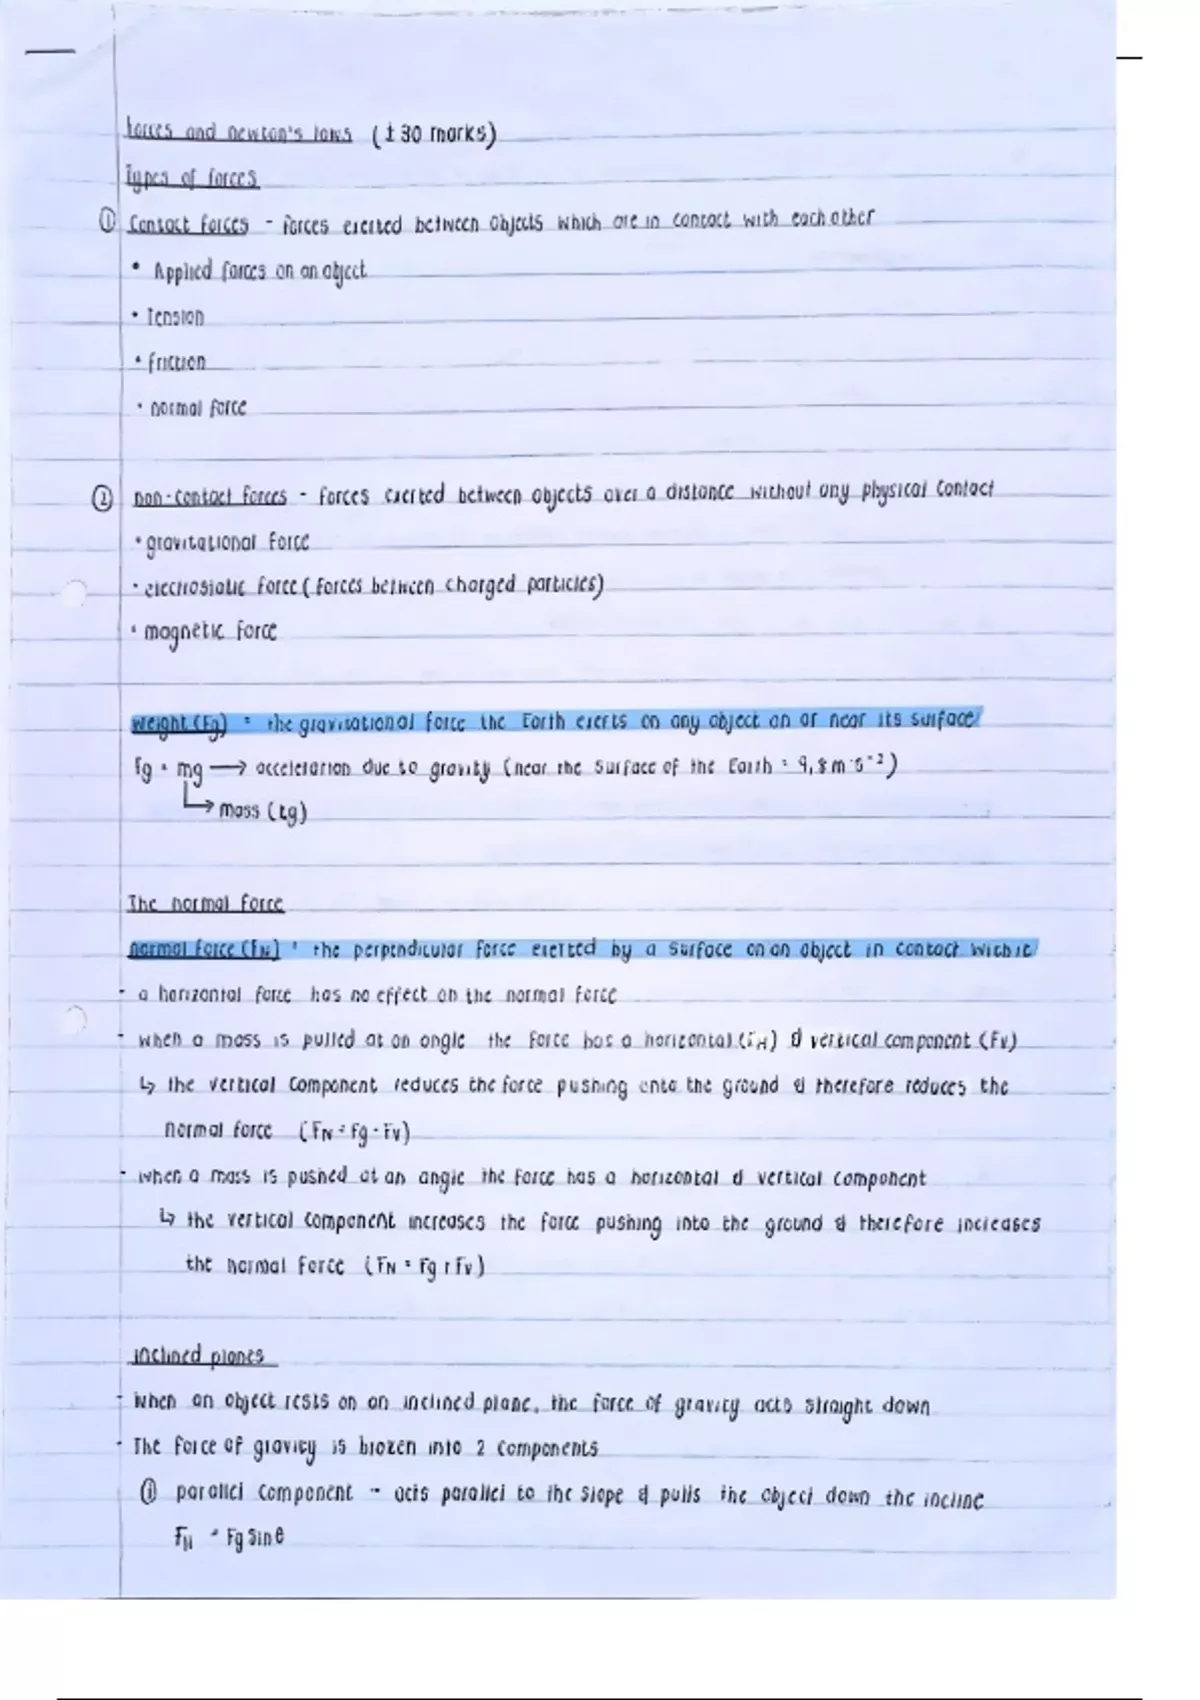 Forces and newton's laws (± 30 marks)
Types of forces
① Contact forces - forces exerted between objects which are in contact with each other
• Applied forces on an object
• Tension
• friction
• normal force
② non-contact forces - forces exerted between objects over a distance without any physical contact
• gravitational force
• electrostatic force (forces between charged particles)
• magnetic force
weight (Fg) : the gravitational force the Earth exerts on any object on or near its surface
Fg = mg → acceleration due to gravity (near the surface of the Earth = 9,8 m·s⁻²)
↳ mass (kg)
The normal force
normal force (FN) : the perpendicular force exerted by a surface on an object in contact with it
- a horizontal force has no effect on the normal force
- when a mass is pulled at an angle the force has a horizontal (FH) & vertical component (Fv)
↳ the vertical component reduces the force pushing onto the ground & therefore reduces the
normal force (FN = Fg - Fv)
- when a mass is pushed at an angle the force has a horizontal & vertical component
↳ the vertical component increases the force pushing into the ground & therefore increases
the normal force (FN = Fg + Fv)
inclined planes
- when an object rests on an inclined plane, the force of gravity acts straight down
- The force of gravity is broken into 2 components
① parallel component - acts parallel to the slope & pulls the object down the incline
F|| = Fg sin θ